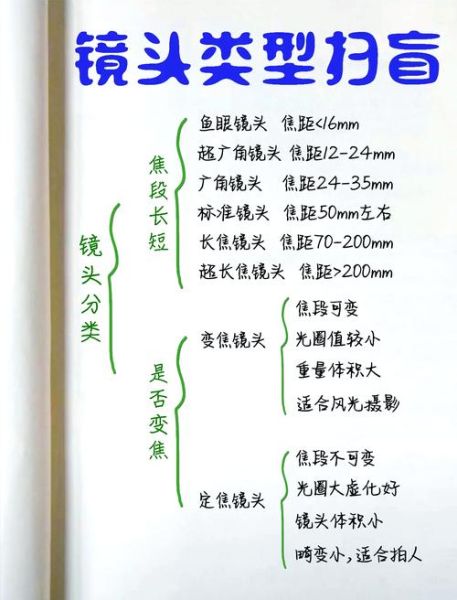 镜头类型扫盲
镜头分类
焦段长短
鱼眼镜头 焦距<16mm
超广角镜头 焦距12-24mm
广角镜头 焦距24-35mm
标准镜头 焦距50mm左右
长焦镜头 焦距70-200mm
超长焦镜头 焦距>200mm
是否变焦
变焦镜头
焦段可变
光圈值较小
重量体积大
适合风光摄影
定焦镜头
焦段不可变
光圈大虚化好
镜头体积小
畸变小,适合拍人